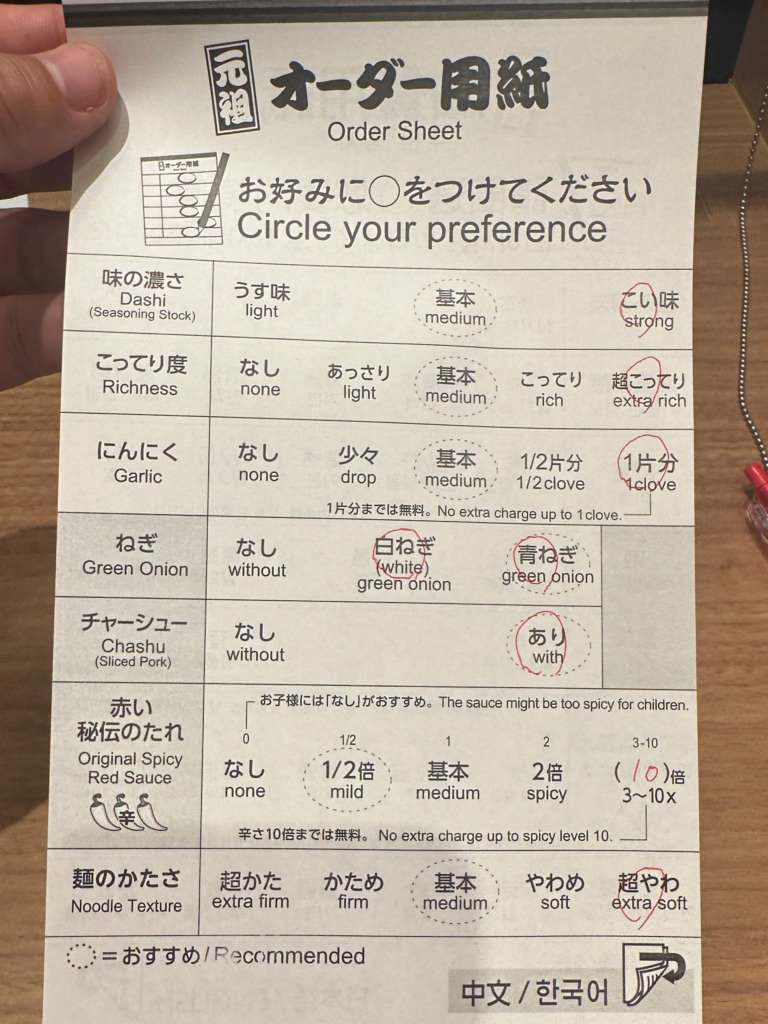 元祖 オーダー用紙
Order Sheet
お好みに○をつけてください
Circle your preference
味の濃さ
Dashi
(Seasoning Stock)
うす味
light
基本
medium
こい味
strong
こってり度
Richness
なし
none
あっさり
light
基本
medium
こってり
rich
超こってり
extra rich
にんにく
Garlic
なし
none
少々
drop
基本
medium
1/2片分
1/2clove
1片分
1clove
1片分までは無料。No extra charge up to 1clove.
ねぎ
Green Onion
なし
without
白ねぎ
(white)
green onion
青ねぎ
green onion
チャーシュー
Chashu
(Sliced Pork)
なし
without
あり
with
赤い
秘伝のたれ
Original Spicy
Red Sauce
辛
お子様には「なし」がおすすめ。The sauce might be too spicy for children.
0
なし
none
1/2
1/2倍
mild
1
基本
medium
2
2倍
spicy
3-10
(10)倍
3〜10x
辛さ10倍までは無料。No extra charge up to spicy level 10.
麺のかたさ
Noodle Texture
超かた
extra firm
かため
firm
基本
medium
やわめ
soft
超やわ
extra soft
=おすすめ/Recommended
中文/한국어